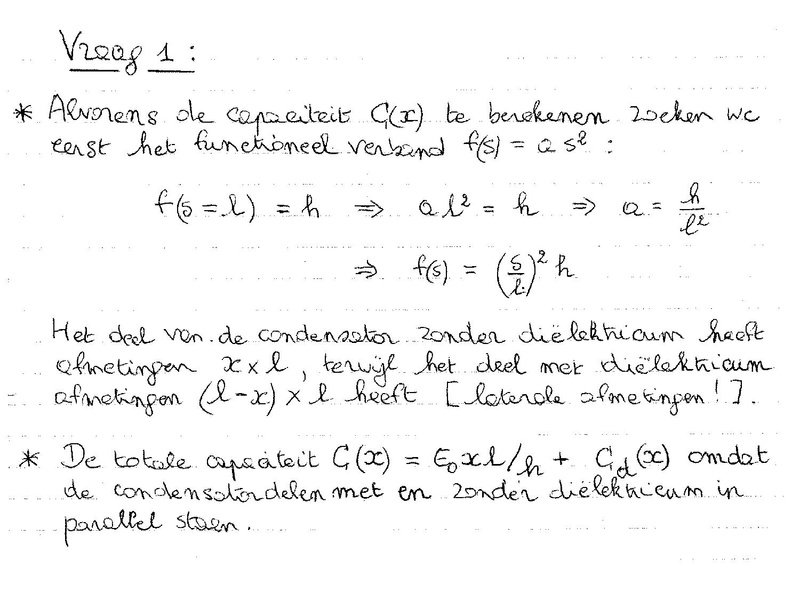 Vraag 1 :
* Alvorens de capaciteit C(x) te berekenen zoeken we
eerst het functioneel verband f(s) = a s² :
f(s = l) = h ⇒ a l² = h ⇒ a = h/l²
⇒ f(s) = (s/l)² h
Het deel van de condensator zonder diëlektricum heeft
afmetingen x × l, terwijl het deel met diëlektricum
afmetingen (l-x) × l heeft [laterale afmetingen!].
* De totale capaciteit C(x) = ε₀xl/h + C_d(x) omdat
de condensatordelen met en zonder diëlektricum in
parallel staan.